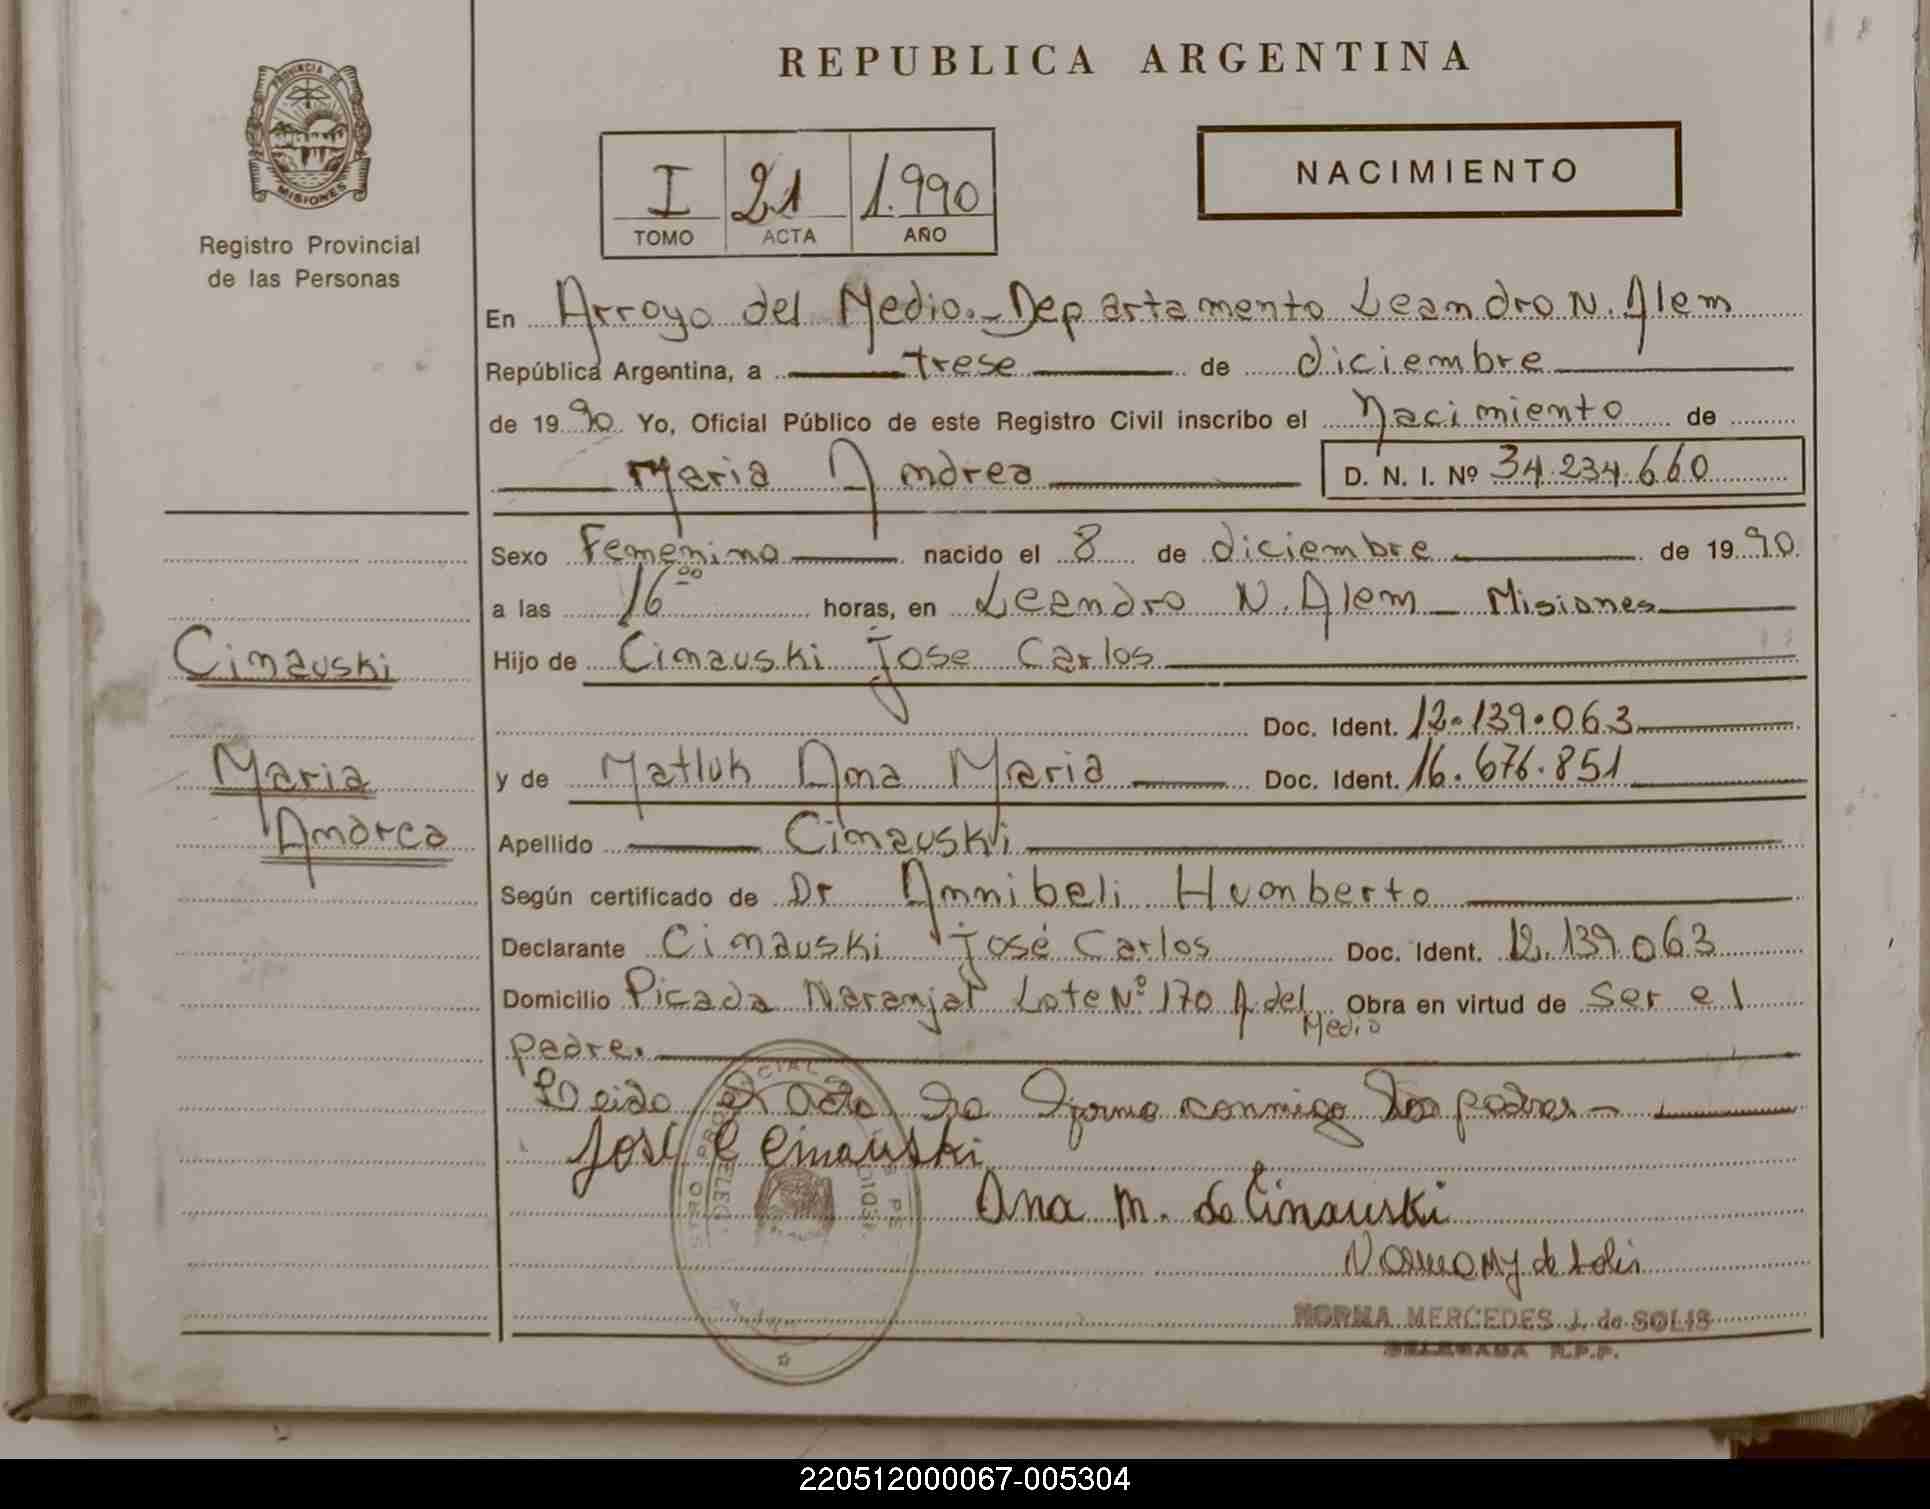 REPUBLICA ARGENTINA
PROVINCIA DE
MISIONES
Registro Provincial
de las Personas
I 21 1.990
TOMO ACTA AÑO
NACIMIENTO
En Arroyo del Medio.- Departamento Leandro N. Alem
República Argentina, a trese de diciembre
de 1990 Yo, Oficial Público de este Registro Civil inscribo el Nacimiento de
Maria Andrea D. N. I. Nº 34.234.660
Sexo Femenino nacido el 8 de diciembre de 1990
a las 16 00 horas, en Leandro N. Alem - Misiones
Cinauski
Hijo de Cinauski Jose Carlos
Doc. Ident. 12.139.063
Maria
y de Matluk Ana Maria Doc. Ident. 16.676.851
Andrea
Apellido Cinauski
Según certificado de Dr Annibeli Huonberto
Declarante Cinauski José Carlos Doc. Ident. 12.139.063
Domicilio Picada Naranjal Lote Nº 170 A. del Medio Obra en virtud de ser el
padre.
Leido el acta la firma conmigo los padres -
José C Cinauski
Ana M. de Cinauski
Norma M J de Solis
NORMA MERCEDES J. de SOLIS
DELEGADA R.P.P.
220512000067-005304